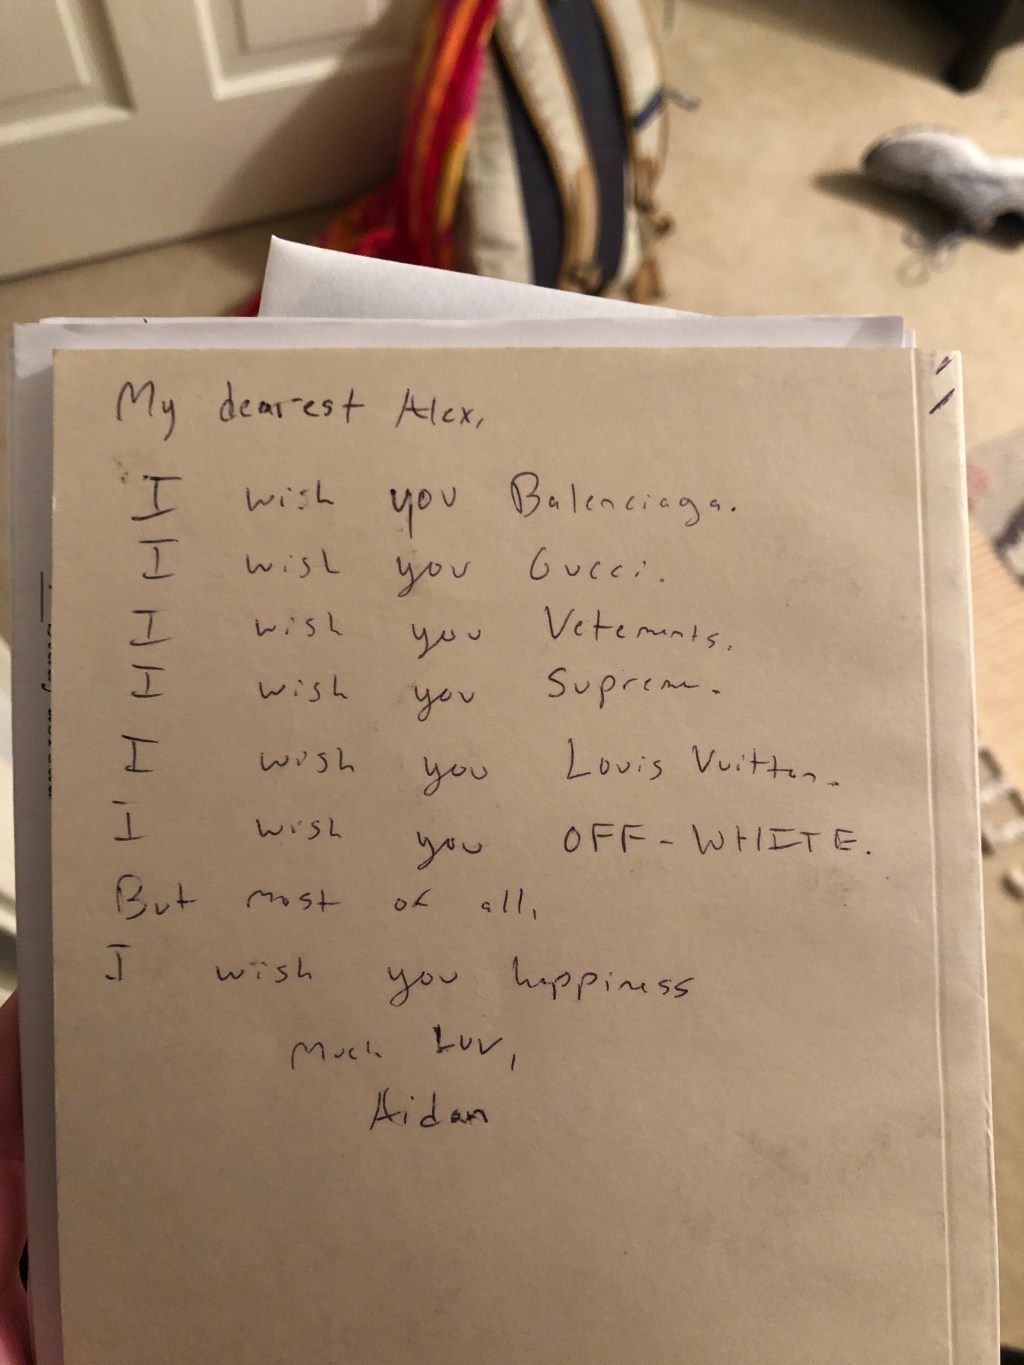 My dearest Alex,
I wish you Balenciaga.
I wish you Gucci.
I wish you Vetements.
I wish you Supreme.
I wish you Louis Vuitton.
I wish you OFF-WHITE.
But most of all,
I wish you happiness
Much Luv,
Aidan